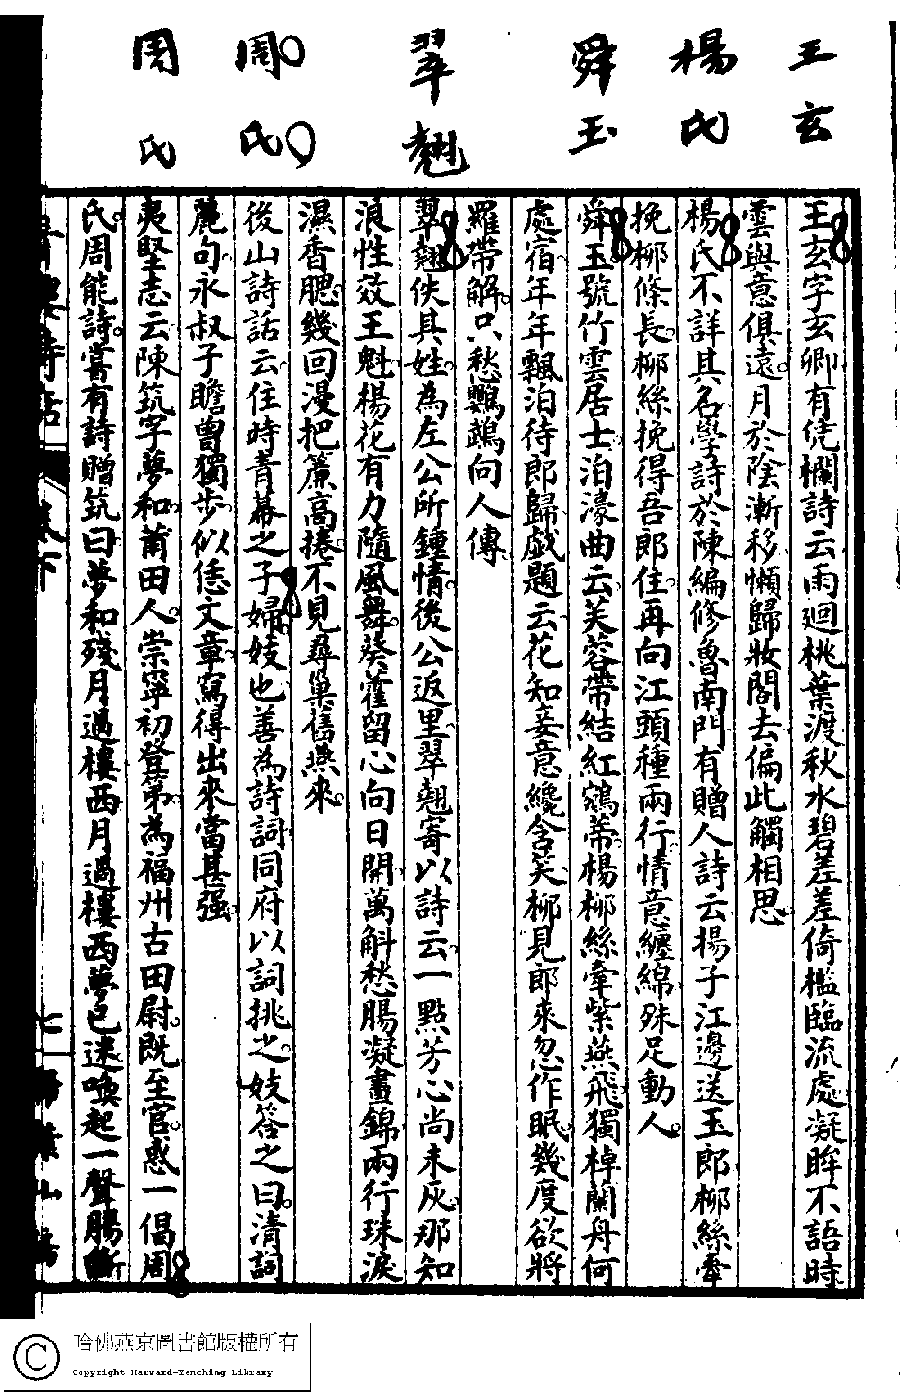 王玄
楊氏
舜玉
翠翹
周氏
周氏
王玄字玄卿有凭欄詩云雨迴桃葉渡秋水碧差差倚檻臨流處凝眸不語時
雲與意俱遠月於陰漸移懶歸妝閣去偏此觸相思
楊氏不詳其名學詩於陳編修魯南門有贈人詩云揚子江邊送玉郎柳絲牽
挽柳條長柳絲挽得吾郎住再向江頭種兩行情意纏綿殊足動人
舜玉號竹雲居士泊濠曲云芙蓉帶結紅鵷蒂楊柳絲牽紫燕飛獨棹蘭舟何
處宿年年飄泊待郎歸戯題云花知妾意纔含笑柳見郎來忽作眠幾度欲將
羅帶解只愁鸚鵡向人傳
翠翹佚其姓為左公所鍾情後公返里翠翹寄以詩云一點芳心尚未灰那知
浪性效王魁楊花有力隨風舞葵藿留心向日開萬斛愁腸凝晝錦兩行珠淚
濕香腮幾回漫把簾高捲不見尋巢舊燕來
後山詩話云往時青幕之子婦妓也善為詩詞同府以詞挑之妓答之曰清詞
麗句永叔子瞻曾獨步似恁文章寫得出來當甚强
夷堅志云陳筑字夢和莆田人崇寧初登第為福州古田尉既至官惑一倡周
氏周能詩嘗有詩贈筑曰夢和殘月過樓西月過樓西夢已迷喚起一聲腸斷
青樓詩話
卷下
七
掃葉山房
哈佛燕京圖書館版權所有
Copyright Harvard-Yenching Library